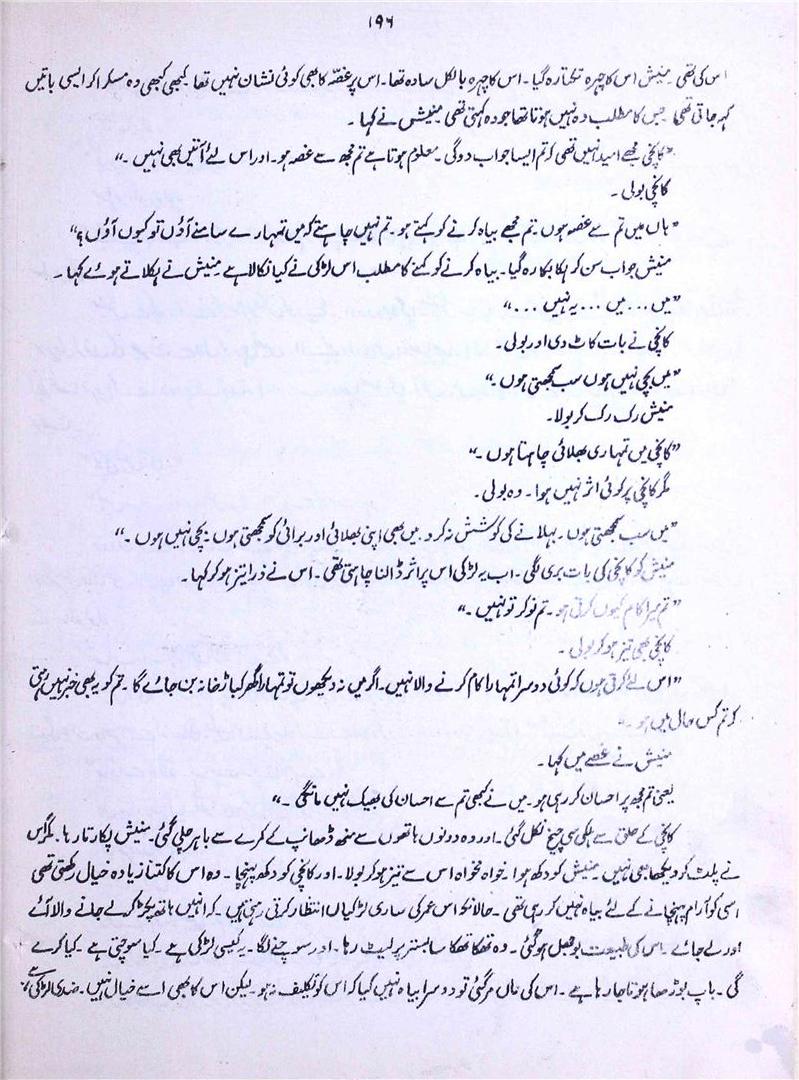 ۱۹۶
اس کی تھی منیش اس کا چہرہ تکتا رہ گیا۔ اس کا چہرہ بالکل سادہ تھا۔ اس پر غصّہ کا بھی کوئی نشان نہیں تھا کبھی کبھی وہ مسکرا کر ایسی باتیں
کہہ جاتی تھی جس کا مطلب وہ نہیں ہوتا تھا جو وہ کہتی تھی منیش نے کہا۔
"کانچی مجھے امید نہیں تھی کہ تم ایسا جواب دوگی۔ معلوم ہوتا ہے تم مجھ سے غصہ ہو۔ اور اس لئے آئیں بھی نہیں۔"
کانچی بولی۔
"ہاں میں تم سے غصہ ہوں۔ تم مجھے بیاہ کرنے کو کہتے ہو۔ تم نہیں چاہتے کہ میں تمہارے سامنے آؤں تو کیوں آؤں؟"
منیش جواب سن کر ہکا بکا رہ گیا۔ بیاہ کرنے کو کہنے کا مطلب اس لڑکی نے کیا نکالا ہے منیش نے ہکلاتے ہوئے کہا۔
"میں... میں... یہ نہیں..."
کانچی نے بات کاٹ دی اور بولی۔
"میں بچی نہیں ہوں سب سمجھتی ہوں۔"
منیش رک رک کر بولا۔
"کانچی میں تمہاری بھلائی چاہتا ہوں۔"
مگر کانچی پر کوئی اثر نہیں ہوا۔ وہ بولی۔
"میں سب سمجھتی ہوں۔ بہلانے کی کوشش نہ کرو۔ میں بھی اپنی بھلائی اور برائی کو سمجھتی ہوں۔ بچی نہیں ہوں۔"
منیش کو کانچی کی بات بری لگی۔ اب یہ لڑکی اس پر اثر ڈالنا چاہتی تھی۔ اس نے ذرا تیز ہو کر کہا۔
"تم میرا کام کیوں کرتی ہو۔ تم نوکر تو نہیں۔"
کانچی بھی تیز ہو کر بولی۔
"اس لئے کرتی ہوں کہ کوئی دوسرا تمہارا کام کرنے والا نہیں۔ اگر میں نہ دیکھوں تو تمہارا گھر کباڑ خانہ بن جائے گا۔ تم کو یہ بھی خبر نہیں رہتی
کہ تم کس حال میں ہو۔"
منیش نے غصے میں کہا۔
یعنی تم مجھ پر احسان کر رہی ہو۔ میں نے کبھی تم سے احسان کی بھیک نہیں مانگی۔"
کانچی کے حلق سے ہلکی سی چیخ نکل گئی۔ اور وہ دونوں ہاتھوں سے منھ ڈھانپ کے کمرے سے باہر چلی گئی۔ منیش پکارتا رہا۔ مگر اس
نے پلٹ کر دیکھا بھی نہیں۔ منیش کو دکھ ہوا۔ خواہ مخواہ اس سے تیز ہو کر بولا۔ اور کانچی کو دکھ پہنچا۔ وہ اس کا کتنا زیادہ خیال رکھتی تھی
اسی کو آرام پہنچانے کے لئے بیاہ نہیں کر رہی تھی۔ حالانکہ اس عمر کی ساری لڑکیاں انتظار کرتی رہتی ہیں۔ کہ انہیں ہاتھ پکڑ کر لے جانے والا آئے
اور لے جائے۔ اس کی طبیعت بوجھل ہو گئی۔ وہ تھکا تھکا سا بستر پر لیٹ رہا۔ اور سوچنے لگا۔ یہ کیسی لڑکی ہے۔ کیا سوچتی ہے۔ کیا کرے
گی۔ باپ بوڑھا ہوتا جا رہا ہے۔ اس کی ماں مر گئی تو دوسرا بیاہ نہیں کیا کہ اس کو تکلیف نہ ہو۔ لیکن اس کا بھی اسے خیال نہیں۔ ضدی لڑکی ہے